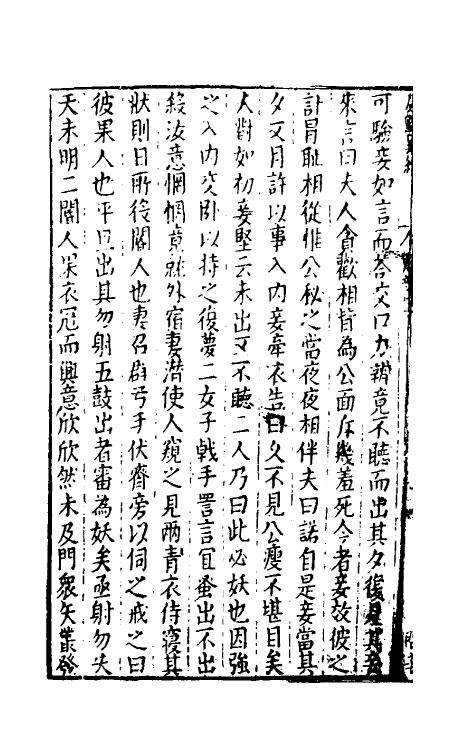 可驗妾如言而答交口力辨竟不聽而出其夕復是其妾
來言曰夫人貪歡相皆為公面斥幾羞死今者妾故彼之
計冒耻相從惟公秘之當夜夜相伴夫曰諾自是妾當其
夕又月許以事入內妾牽衣告曰久不見公瘦不堪目矣
人對如初妾堅云未出又不聽二人乃曰此必妖也因強
之入內交臥以持之復夢二女子戟手詈言宜蚤出不出
殺汝意惘惘竟就外宿妻潛使人窺之見兩青衣侍寢其
狀則日所役閽人也妻召辟弓手伏齋旁以伺之戒之曰
彼果人也平旦出其勿射五鼓出者審為妖矣亟射勿失
天未明二閽人果衣冠而興意欣欣然未及門衆矢叢發